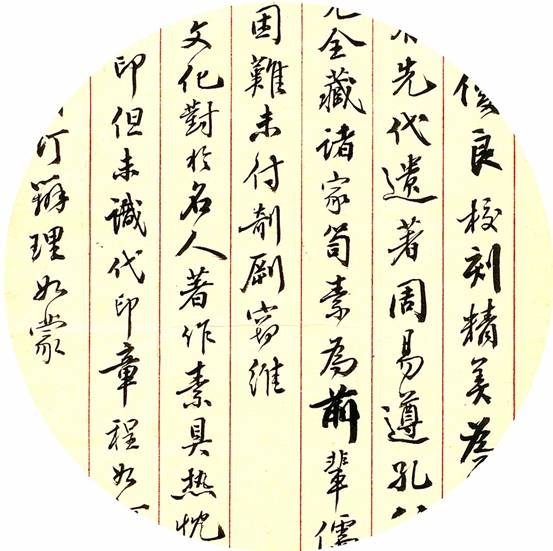 良校刻精美
先代遺著周易遵孔
全藏諸家笥素為前輩儒
困難未付剞劂竊維
文化對於名人著作素具熱忱
印但未識代印章程如
辦理如蒙